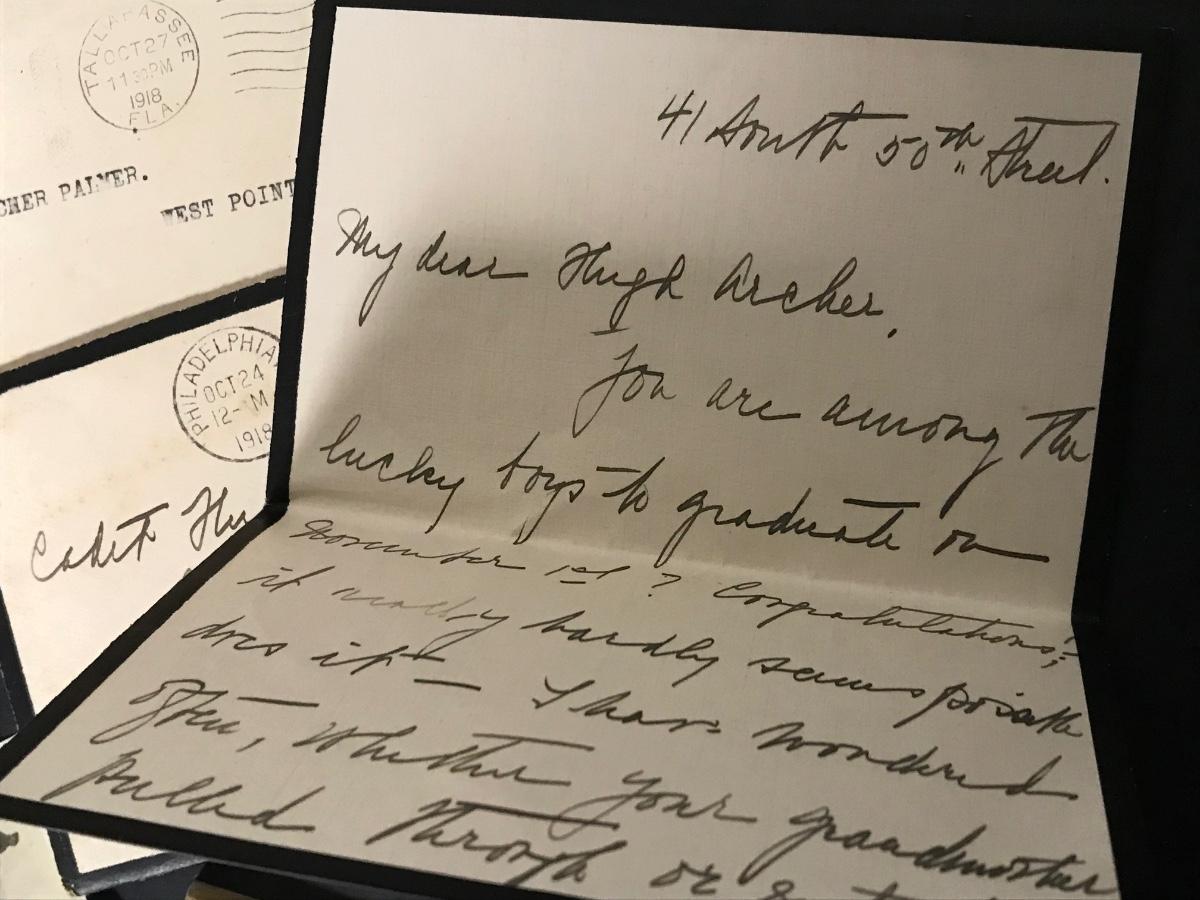 TALLAHASSEE
OCT 27
11 30 PM
1918
FLA.
CHER PALMER.
WEST POINT
PHILADELPHIA
OCT 24
12- M
1918
Cadet Hu
41 South 50th Street.
My dear Hugh Archer,
You are among the
lucky boys to graduate on
November 1st? Congratulations!
it really hardly seems possible
does it— I have wondered
often, whether your grandmother
pulled through or